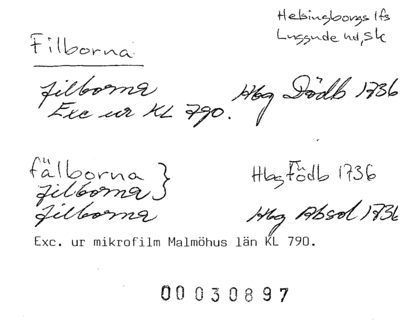 Helsingborgs lfs
Luggude hd, Sk
Filborna
filborna Hbg Dödb 1736
Exc ur KL 790.
fälborna } Hbg Födb 1736
filborna }
filborna Hbg Absol 1736
Exc. ur mikrofilm Malmöhus län KL 790.
00030897